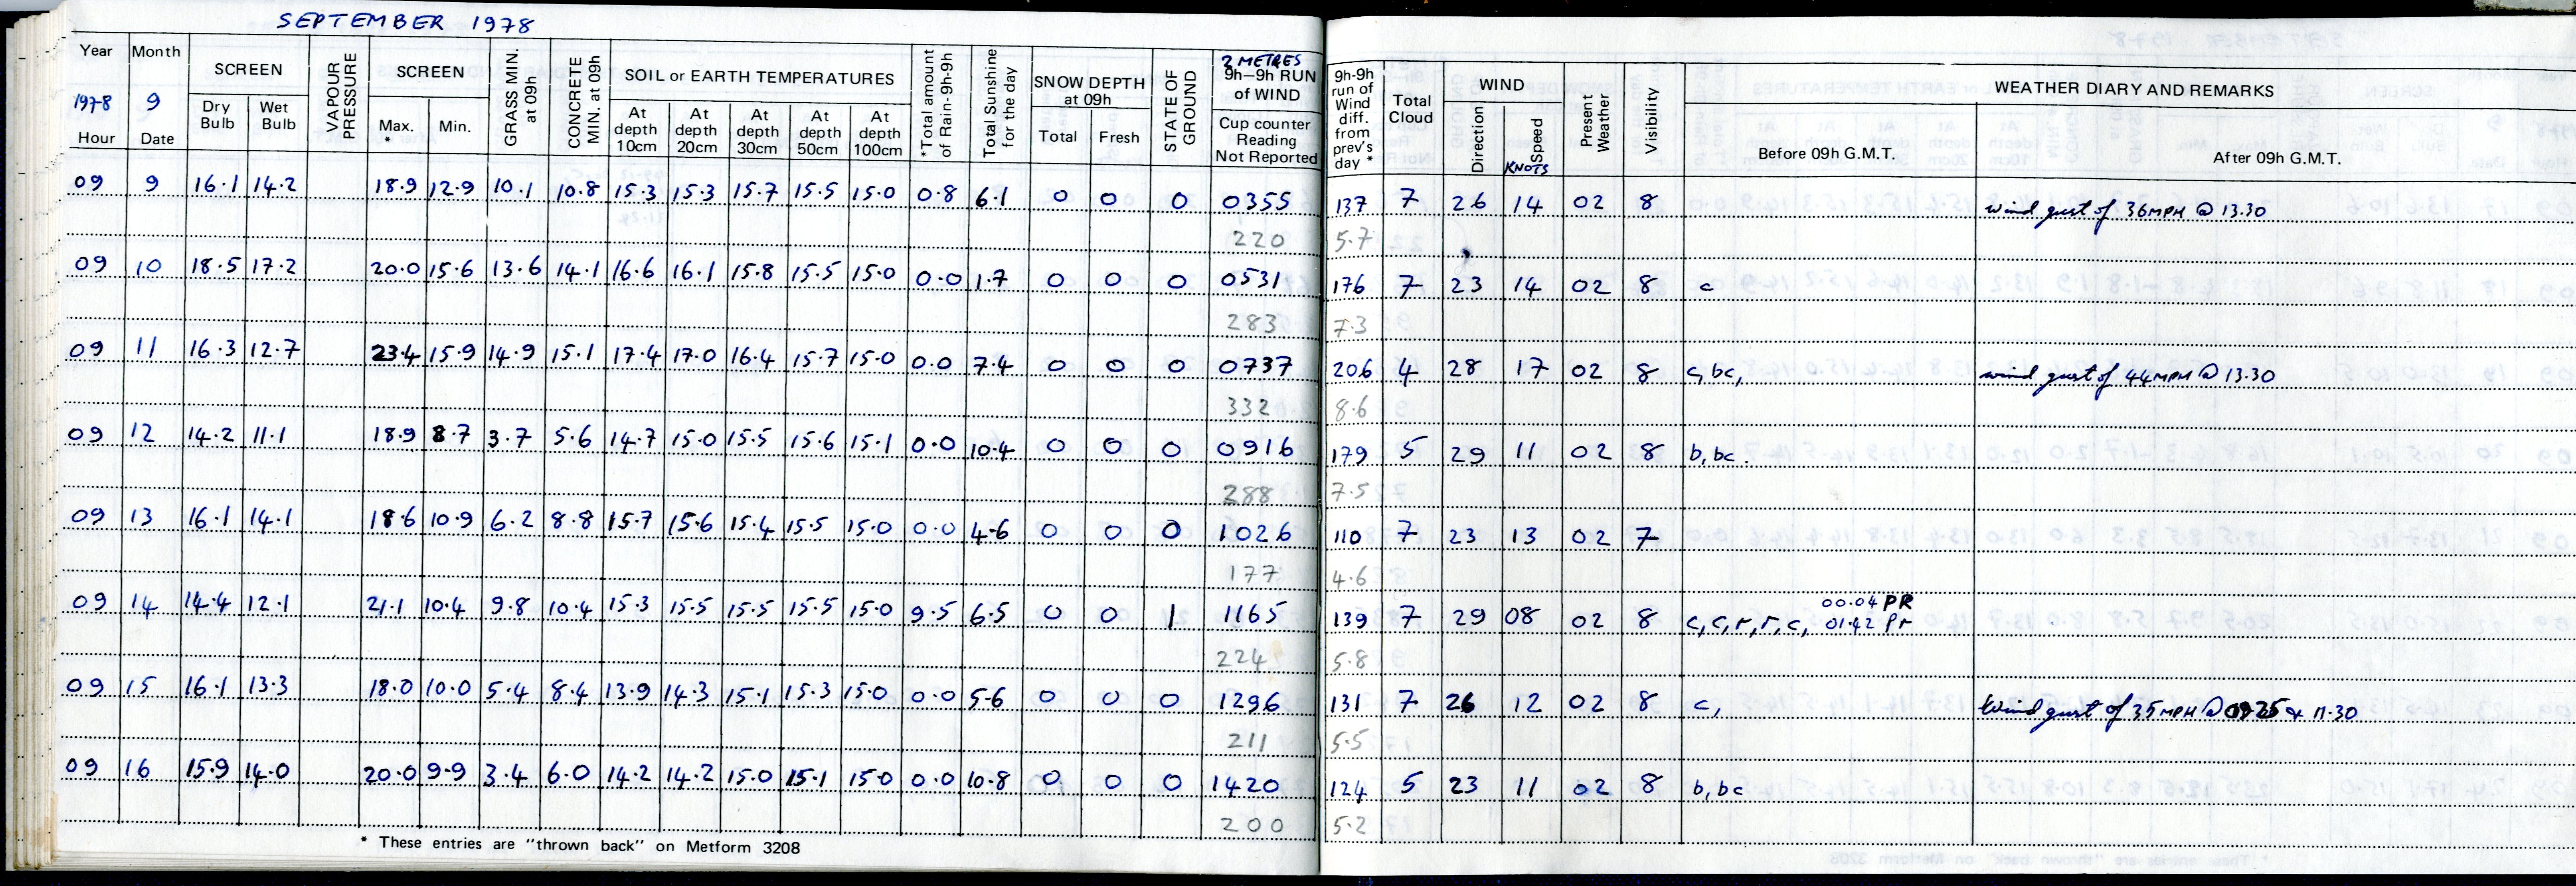 SEPTEMBER 1978
Year Month SCREEN VAPOUR PRESSURE SCREEN GRASS MIN. at 09h CONCRETE MIN. at 09h SOIL or EARTH TEMPERATURES *Total amount of Rain-9h-9h Total Sunshine for the day SNOW DEPTH at 09h STATE OF GROUND 2 METRES 9h-9h RUN of WIND 9h-9h run of Wind diff. from prev's day * Total Cloud WIND Present Weather Visibility WEATHER DIARY AND REMARKS
1978 9 Dry Bulb Wet Bulb Max. * Min. At depth 10cm At depth 20cm At depth 30cm At depth 50cm At depth 100cm Total Fresh Cup counter Reading Not Reported Direction Speed KNOTS Before 09h G.M.T. After 09h G.M.T.
Hour Date
09 9 16.1 14.2 18.9 12.9 10.1 10.8 15.3 15.3 15.7 15.5 15.0 0.8 6.1 0 0 0 0355 137 7 26 14 02 8 wind gust of 36MPH @ 13.30
220 5.7
09 10 18.5 17.2 20.0 15.6 13.6 14.1 16.6 16.1 15.8 15.5 15.0 0.0 1.7 0 0 0 0531 176 7 23 14 02 8 c
283 7.3
09 11 16.3 12.7 23.4 15.9 14.9 15.1 17.4 17.0 16.4 15.7 15.0 0.0 7.4 0 0 0 0737 206 4 28 17 02 8 c, bc, wind gust of 44MPH @ 13.30
332 8.6
09 12 14.2 11.1 18.9 8.7 3.7 5.6 14.7 15.0 15.5 15.6 15.1 0.0 10.4 0 0 0 0916 179 5 29 11 02 8 b, bc.
288 7.5
09 13 16.1 14.1 18.6 10.9 6.2 8.8 15.7 15.6 15.4 15.5 15.0 0.0 4.6 0 0 0 1026 110 7 23 13 02 7
177 4.6
00.04 PR
09 14 14.4 12.1 21.1 10.4 9.8 10.4 15.3 15.5 15.5 15.5 15.0 9.5 6.5 0 0 1 1165 139 7 29 08 02 8 c, c, r, r, c, 01.42 Pr
224 5.8
09 15 16.1 13.3 18.0 10.0 5.4 8.4 13.9 14.3 15.1 15.3 15.0 0.0 5.6 0 0 0 1296 131 7 26 12 02 8 c, Wind gust of 35MPH @ & 11.30
211 5.5
09 16 15.9 14.0 20.0 9.9 3.4 6.0 14.2 14.2 15.0 15.1 15.0 0.0 10.8 0 0 0 1420 124 5 23 11 02 8 b, bc
200 5.2
* These entries are "thrown back" on Metform 3208